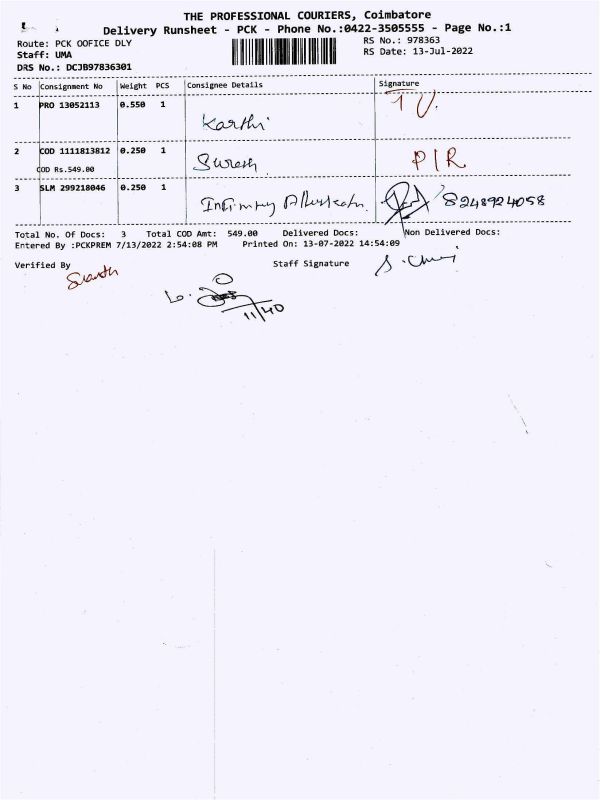 THE PROFESSIONAL COURIERS, Coimbatore
Delivery Runsheet - PCK - Phone No.:0422-3505555 - Page No.:1
Route: PCK OOFICE DLY
RS No.: 978363
Staff: UMA
RS Date: 13-Jul-2022
DRS No.: DCJB97836301
S No Consignment No Weight PCS Consignee Details Signature
1 PRO 13052113 0.550 1
Karthi
2 COD 1111813812 0.250 1 Suresh P/R
COD Rs.549.00
3 SLM 299218046 0.250 1 8248924058
Total No. Of Docs: 3 Total COD Amt: 549.00 Delivered Docs: Non Delivered Docs:
Entered By :PCKPREM 7/13/2022 2:54:08 PM Printed On: 13-07-2022 14:54:09
Verified By Staff Signature
11/40